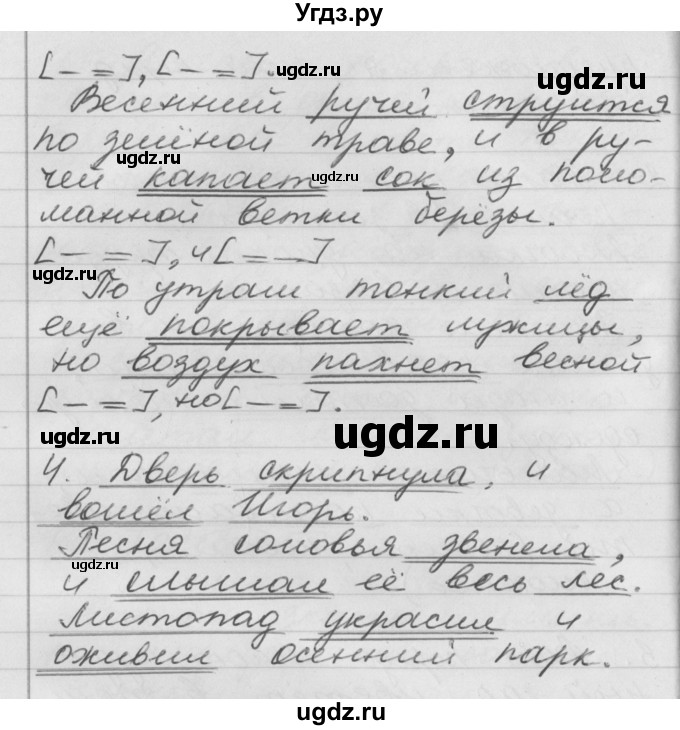 Угдз.ру
[— =], [— =].
ugdz.ru
ugdz.ru
Весенний ручей струится
по зелёной траве, и в ру-
ugdz.ru
ugdz.ru
чей капает сок из поло-
манной ветки берёзы.
[— =], и [= —]
ugdz.ru
По утрам тонкий лёд
ещё покрывает лужицы,
но воздух пахнет весной
[— =], но [— =].
ugdz.ru
ugdz.ru
4. Дверь скрипнула, и
вошёл Игорь.
Песня соловья звенела,
ugdz.ru
и слышал её весь лес.
Листопад украсил и
оживил осенний парк.
ugdz.ru
ugdz.ru